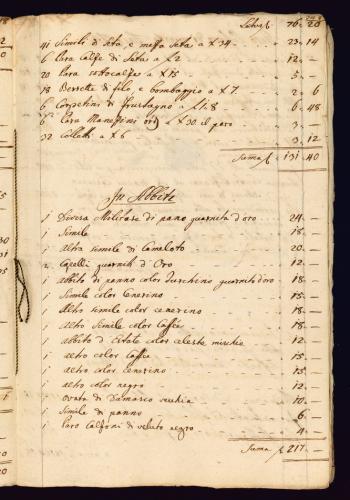 76 - 20
41 Simili di Seta, e mezza Seta a X 34 23 - 14
6 Para Calze di Seta a X 2 12 -
20 Para sottocalze a X 15 5 -
18 Berrette di filo, e bombaggio a X 7 2 - 6
6 Corpetini di frustagno a 1:8 6 - 48
6 Para Manezzini a X 30 il paro 3 -
32 Collatti a X 6 3 - 12
Suma f 131 - 40
In Abbiti
1 Divisa Militare di pano guarnita d'oro 24 -
1 Simile 18 -
1 Altra simile di Camaloto 20 -
2 Capelli guarniti d'Oro 12 -
1 Abbito di panno color Turchino guarnito d'oro 18 -
1 Simile color Cenerino 15 -
1 Altro simile color cenerino 18 -
1 Altro Simile color Caffè 18 -
1 Abbito d' color celeste 12 -
1 altro color Caffe 15 -
1 altro color cenerino 15 -
1 altro color negro 12 -
1 di Damasco vechia 10 -
1 Simile di panno 6 -
1 Paro Calzoni di veluto negro 4 -
Suma f 217 -